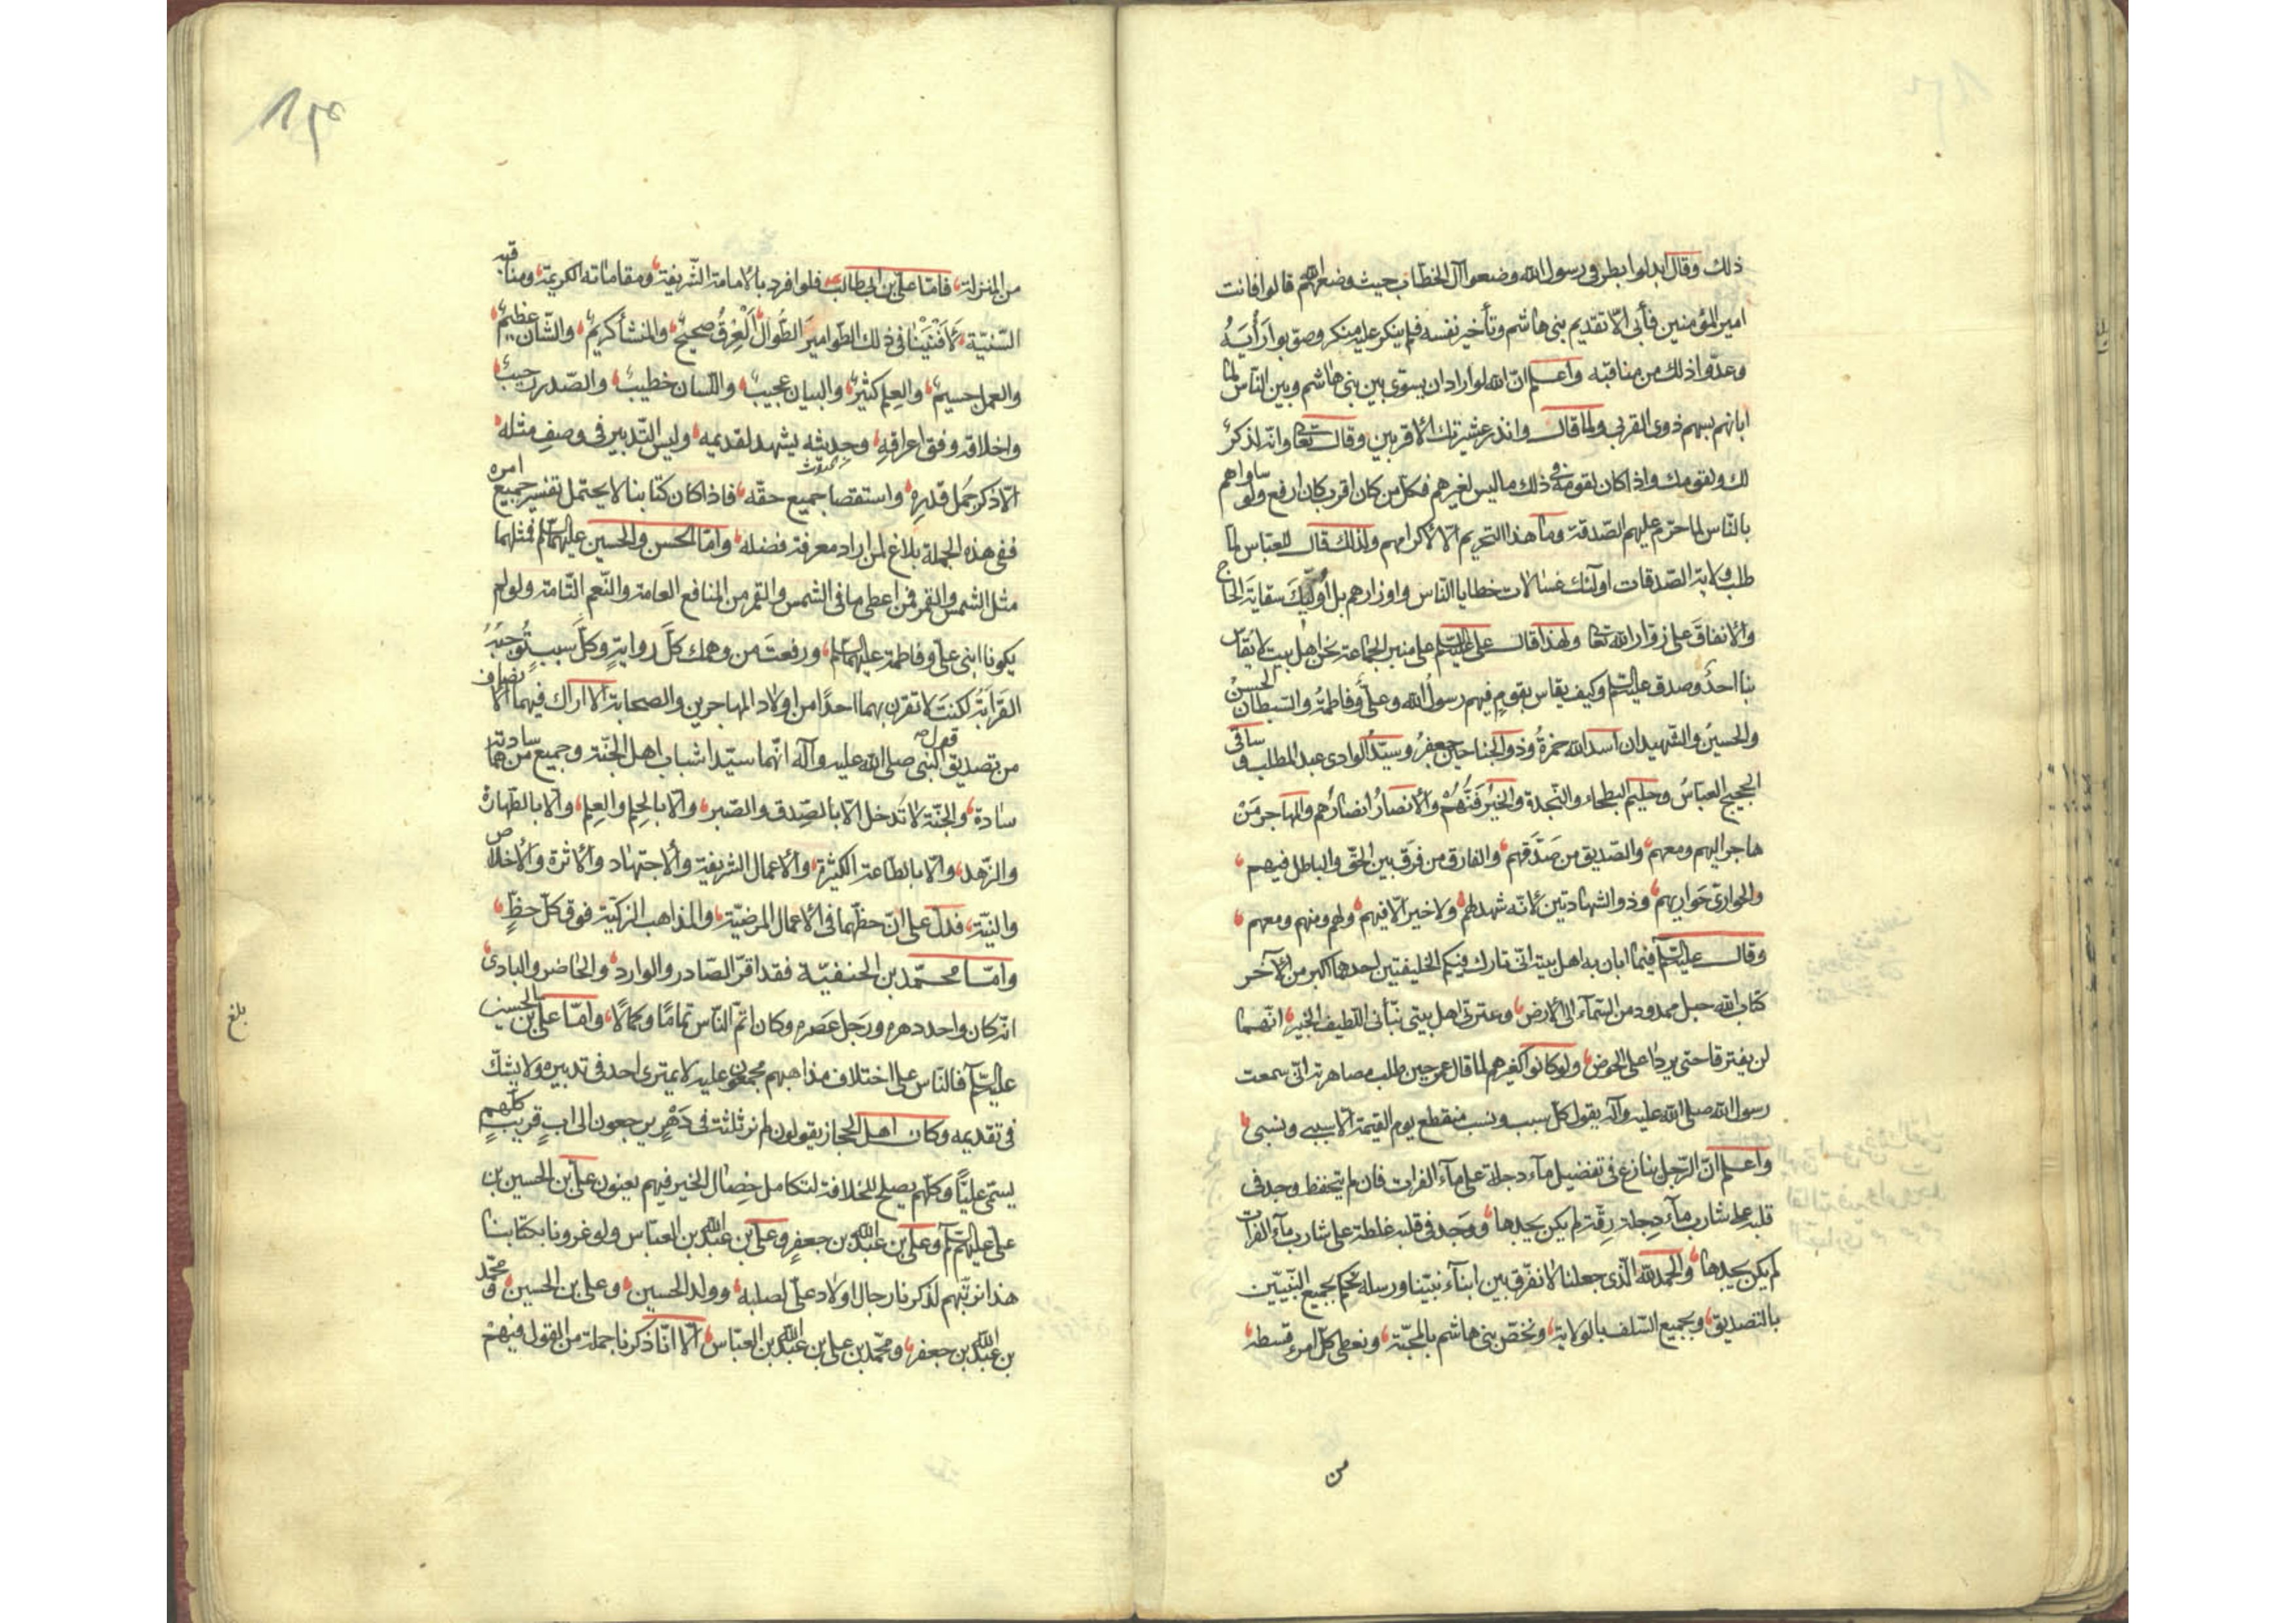 ذلك وقال ابدلوا بطرفى رسول الله وضعوا آل الخطاب حيث وضعهم الله قالوا فانت
امير المؤمنين فأبى الّا تقديم بنى هاشم وتأخير نفسه فلم ينكر عليه منكر وصوّبوا رَأْيَهُ
وعدّوا ذلك من مناقبه واعلم انّ الله لو اراد ان يسوّى بين بنى هاشم وبين النّاس لما
ابانهم بسهم ذوى القربى ولما قال وانذر عشيرتك الاقربين وقال تعالى وانّه لذكرٌ
لك ولقومك واذا كان لقومه فى ذلك ما ليس لغيرهم فكل من كان اقرب كان ارفع ولو ساواهم
بالنّاس لما حرّم عليهم الصّدقة وما هذا التحريم الّا لاكرامهم ولذلك قال للعبّاس لمّا
طلب ولاية الصّدقات اولّيك غسالات خطايا النّاس واوزارهم بل اُولّيكَ سقايةَ الحاج
والانفاقَ على زوّار الله تعالى ولهذا قال على عليه السّلم على منبر الجماعة نحن اهل بيت لا يقاس
بنا احدٌ وصدق عليه السّلم وكيف يقاس بقومٍ فيهم رسولُ الله وعلىّ وفاطمةُ والسبطان الحسنُ
والحسينُ والشهيدان اسد الله حمزةُ وذو الجناحين جعفرُ وسيّدُ الوادى عبد المطلب وساقى
الحجيج العبّاسُ وحليم البطحاء والنّجدة والخيْر فيهُمْ والانصارُ انصارُهم والمهاجر مَنْ
هاجر اليهم ومعهم والصّديق من صَدَّقَهم والفارق من فرق بين الحقّ والباطل فيهم
والحوارىّ حَواريهم وذو الشهادتين لانّه شهد لهم ولا خير الّا فيهم ولهم ومنهم ومعهم
وقال عليه السّلم فيما ابان به اهل بيته انّى تارك فيكم الخليفتين احدهما اكبر من الآخر
كتاب الله حبل ممدود من السّماء الى الارض وعترتى اهل بيتى نبّأنى اللّطيف الخبير انّهما
لن يفترقا حتى يردا علىّ الحوض ولو كانوا كغيرهم لما قال عمر حين طلب مصاهرة انّى سمعت
رسول الله صلى الله عليه وآله يقول كلّ سبب ونسب منقطع يوم القيمة الّا سببى ونسبى
واعلم انّ الرّجل ينازع فى تفضيل ماء دجلة على ماء الفرات فان لم يتحفظ وجد فى
قلبه على شارب ماء دجلة رِقّة لم يكن يجدها ووجد فى قلبه غلظة على شارب ماء الفرات
لم يكن يجدها والحمد لله الّذى جعلنا لا نفرّق بين ابناء نبيّنا ورسله نحكم بجميع النّبيّين
بالتصديق وبجميع السّلف بالولاية ونخصّ بنى هاشم بالمحبّة ونعطى كلّ امرء قسطه
من
من المنزلة فامّا على بن ابى طالب فلو افرد بالامامة الشّريفة ومقاماته الكريمة ومناقبه
السّنيّة لَاَفْنَيْنا فى ذلك الطّوامير الطّوال اَلْعِرْقُ صحيحٌ والمنشأ كريمٌ والشّان عظيمٌ
والعمل جسيمٌ والعِلم كثيرٌ والبيان عجيبٌ واللّسان خطيبٌ والصّدر رحيبٌ
واخلاقه وفق اعراقهِ وحديثه يشهد لقديمه وليس التّدبير فى وصفِ مثله
الّا ذكر جمل قدرهِ واستقصا جميع حقّه فاذا كان كتابنا لا يحتمل تفسير جميع امره
ففى هذه الجملة بلاغ لمن اراد معرفة فضله وامّا الحسن والحسين عليهما السّلم فمثلهما
مثل الشمس والقمر فمن اعطى ما فى الشمس والقمر من المنافع العامة والنّعم التّامة ولو لم
يكونا ابنى على وفاطمة عليهما السّلم ورفعتَ من وهمك كلّ روايةٍ وكلّ سببٍ تُوجبُهُ
القرابةُ لكنتَ لا تقرن بهما احدًا من اولاد المهاجرين والصحابة الّا اراك فيهما الانصاف
من تصديق قول النّبى صلى الله عليه وآله انّهما سيّدا شباب اهل الجنّة وجميع من هما سادته
سادة والجنّة لا تُدخل الّا بالصّدق والصّبر والّا بالحلم والعِلم والّا بالطّهارة
والزّهد والّا بالطّاعة الكثيرة والاعمال الشريفة والاجتهاد والاثرة والاخلاص
والنيّة فدلّ على انّ حظّهما فى الاعمال المرضيّة والمذاهب الزكيّة فوق كلّ حظٍّ
وامّا محمّد بن الحنفيّة فقد اقرّ الصّادر والوارد والحاضر والبادى
انّه كان واحد دهره ورَجل عَصره وكان اتمّ النّاس تمامًا وكمالًا وامّا على بن الحسين
عليه السّلم فالنّاس على اختلاف مذاهبهم مجمعون عليه لا يمترى احد فى تدبيره ولا يشكّ
فى تقديمه وكان اهل الحجاز يقولون لم نر ثلثة فى دَهْرٍ يرجعون الى ابٍ قريبٍ كلّهم
يسمّى عليًّا وكلّهم يصلح للخلافة لتكامل خِصال الخير فيهم يعنون علىّ بن الحسين بن
على عليهم السّلم وعلى بن عبد الله بن جعفرٍ وعلى بن عبد الله بن العبّاس ولو غرونا بكتابنا
هذا ترتّبهم لذكرنا رجال اولاد علىّ لصلبه وولد الحسين وعلى بن الحسين ومحمّد
بن عبد الله بن جعفر ومحمّد بن على بن عبد الله بن العبّاس الّا انّا ذكرنا جملة من القول فيهمْ
بلغ